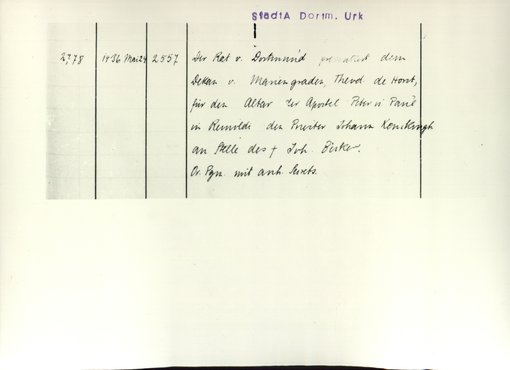 StadtA Dortm. Urk
2778 1436 Mai 24 2557 Der Rat v. Dortmund präsentiert dem
Dekan v. Mariengraden, Theod. de Horst,
für den Altar der Apostel Peter u. Paul
in Reinoldi den Priester Johann
an Stelle des † Joh.
Or. Pgm. mit anh. Sekrets.